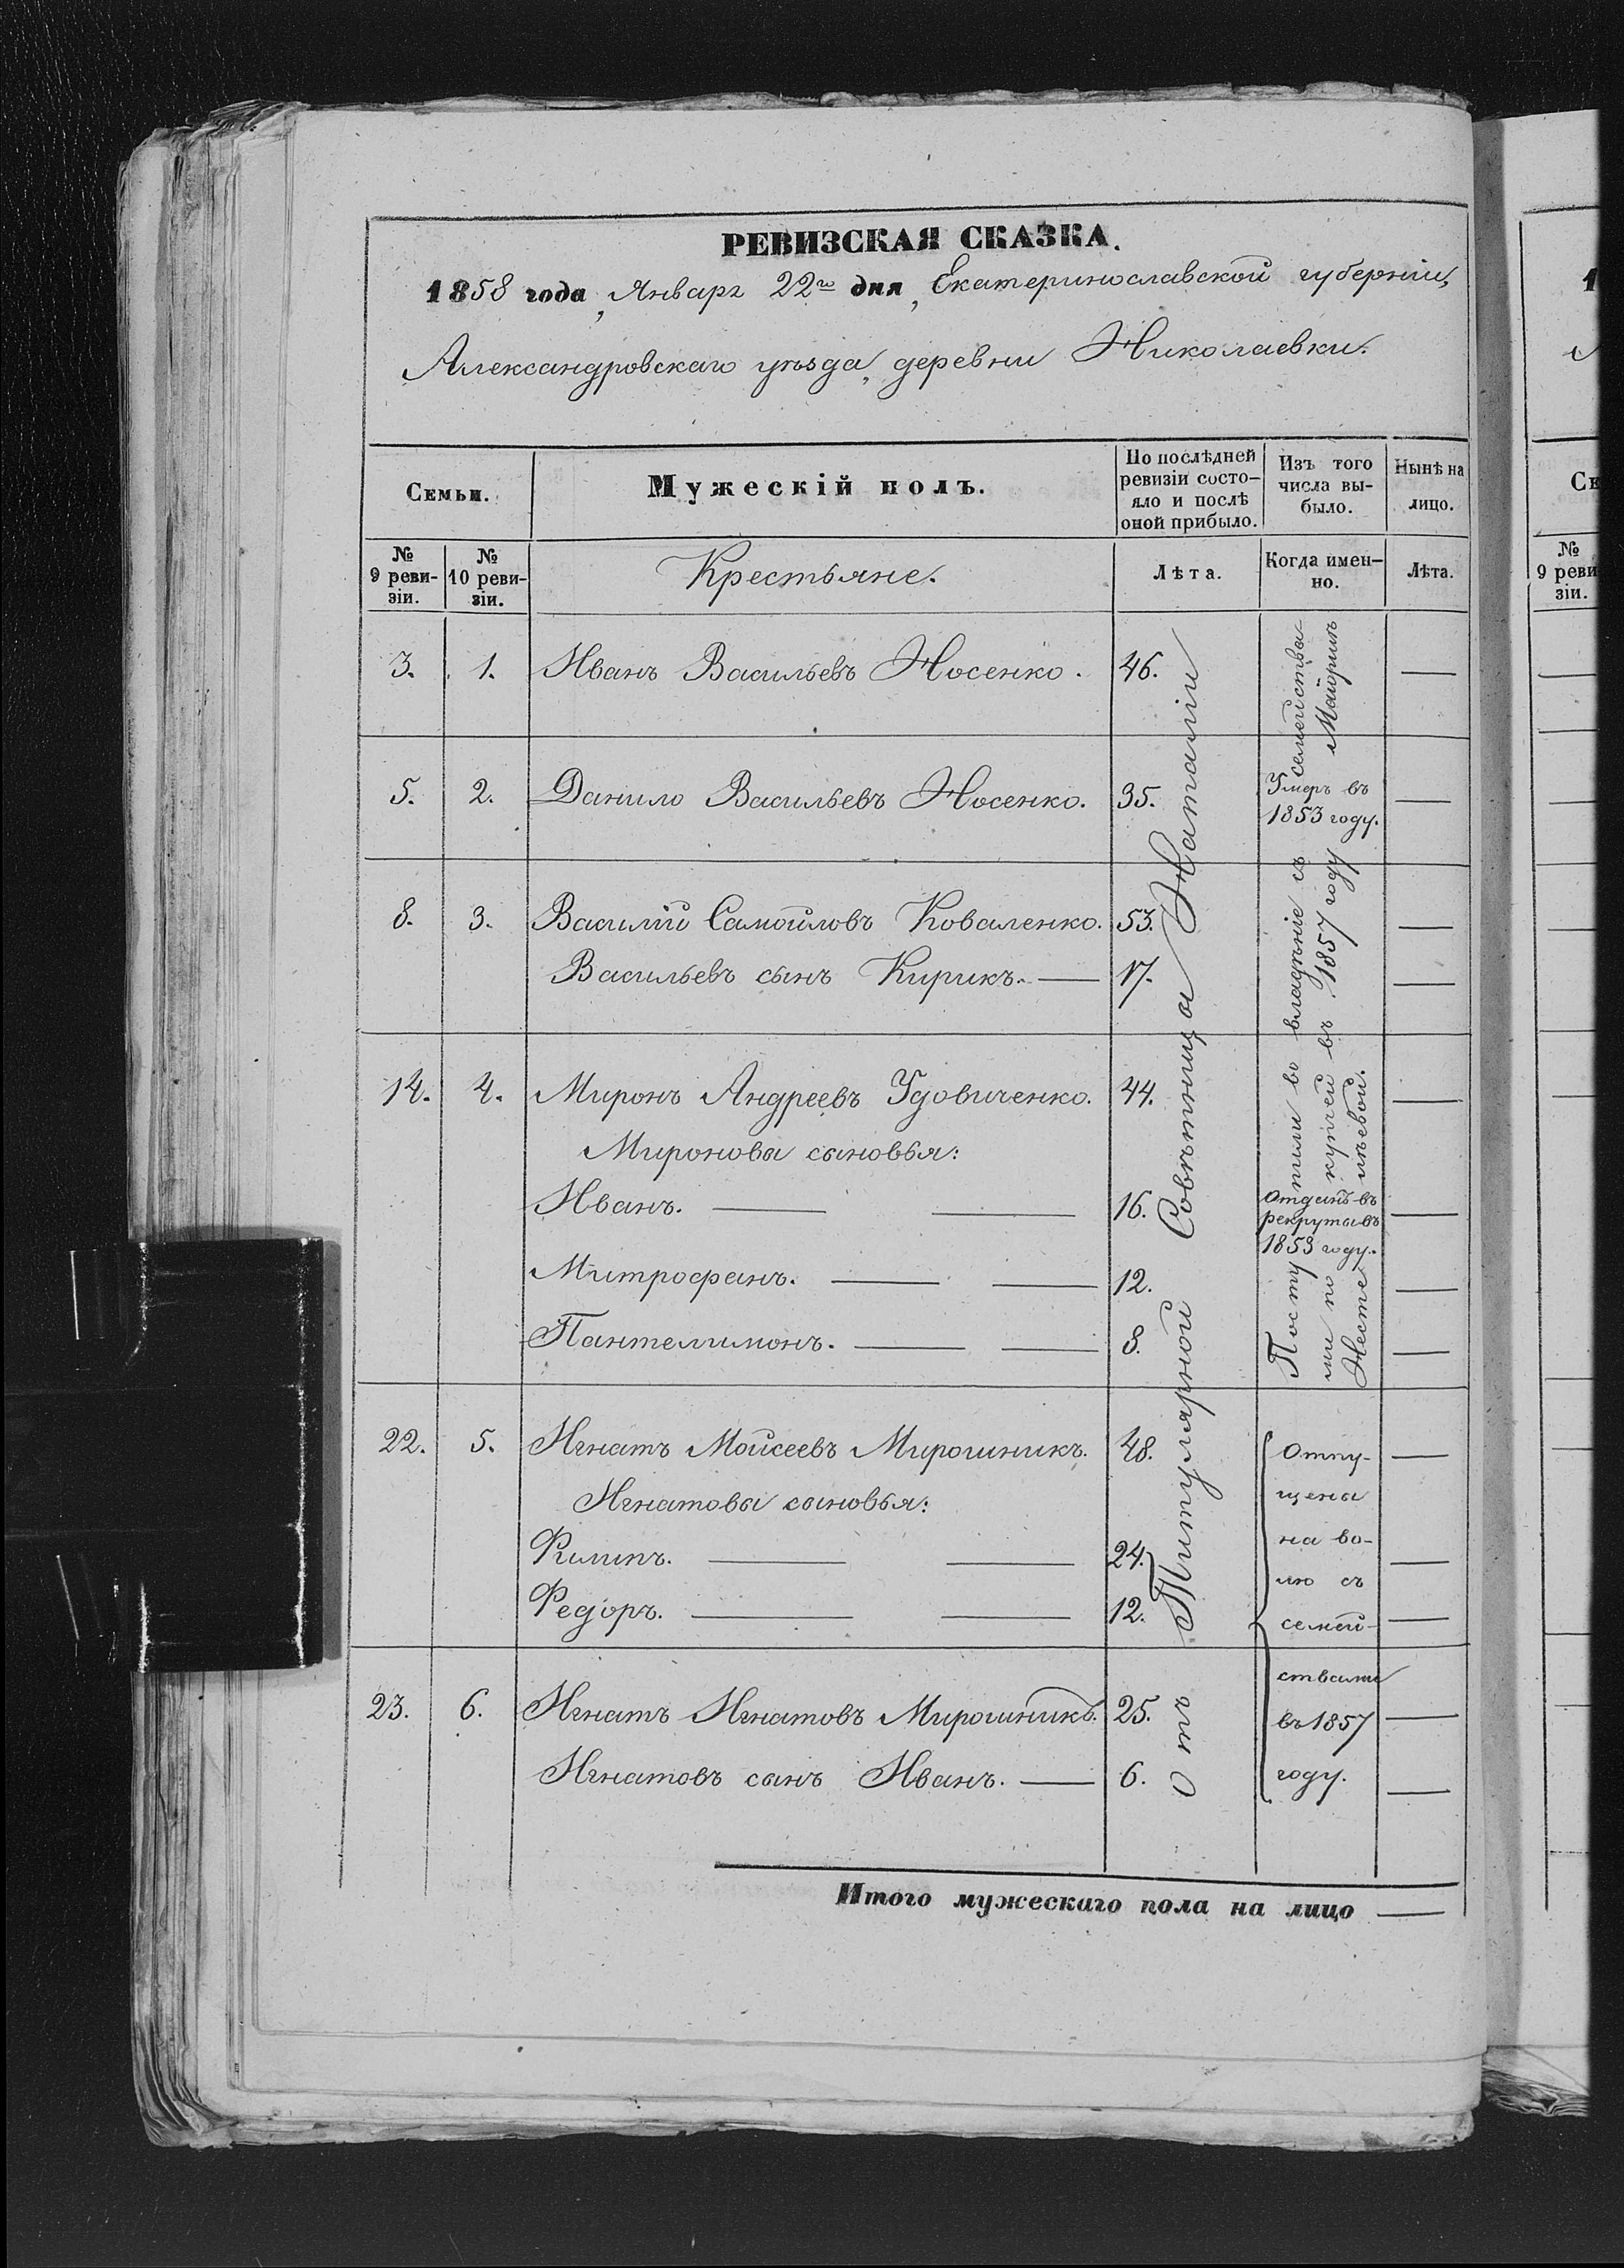 РЕВИЗСКАЯ СКАЗКА.
1858 года, Январъ 22го дня, Екатеринославской губерніи,
Александровскаго уѣзда, деревни Николаевки.
Семьи.
Мужескій полъ.
По послѣдней
ревизіи состо-
яло и послѣ
оной прибыло.
Изъ того
числа вы-
было.
Нынѣ на
лицо.
№
9 реви-
зіи.
№
10 реви-
зіи.
Крестьяне.
Лѣта.
Когда имен-
но.
Лѣта.
3. 1. Иванъ Васильевъ Носенко. 46. —
5. 2. Данило Васильевъ Носенко. 35. Умеръ въ 1853 году. —
8. 3. Василій Самойловъ Коваленко. 53. —
Васильевъ сынъ Кирикъ. — 17. —
14. 4. Миронъ Андреевъ Удовиченко. 44. —
Миронова сыновья:
Иванъ. — — 16. Отданъ въ рекруты въ 1853 году. —
Митрофанъ. — — 12. —
Пантелимонъ. — — 8. —
22. 5. Игнатъ Мойсеевъ Мирошникъ. 48. —
Игнатова сыновья:
Филипъ. — — 24. —
Федоръ. — — 12. —
23. 6. Игнатъ Игнатовъ Мирошникъ. 25. —
Игнатовъ сынъ Иванъ. — 6. —
Отъ Титулярной Совѣтницы Наталіи
Поступили во владѣніе съ семействами по купчей въ 1857 году Маіоршѣ
Отпу-
щены
на во-
лю съ
семей-
ствами
въ 1857
году.
Итого мужескаго пола на лицо —
1
Се
№
9 реви
зіи.